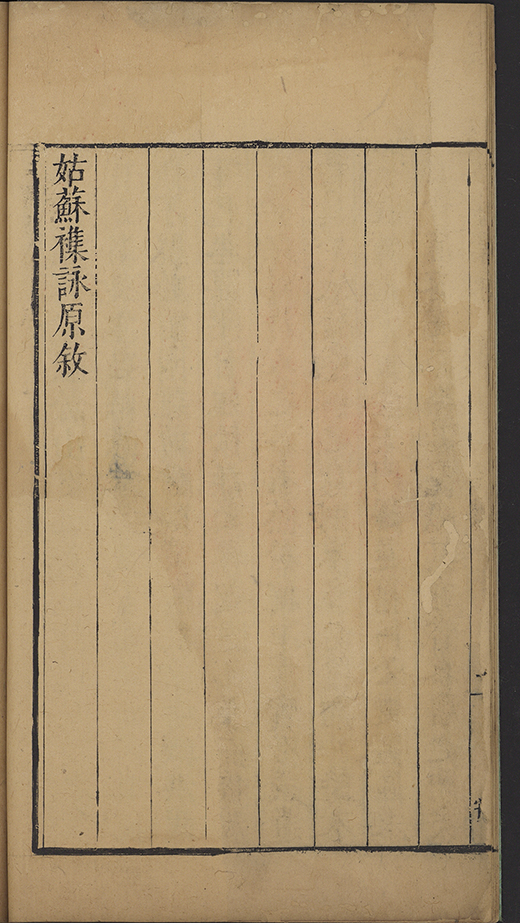 姑蘇襍詠原敘